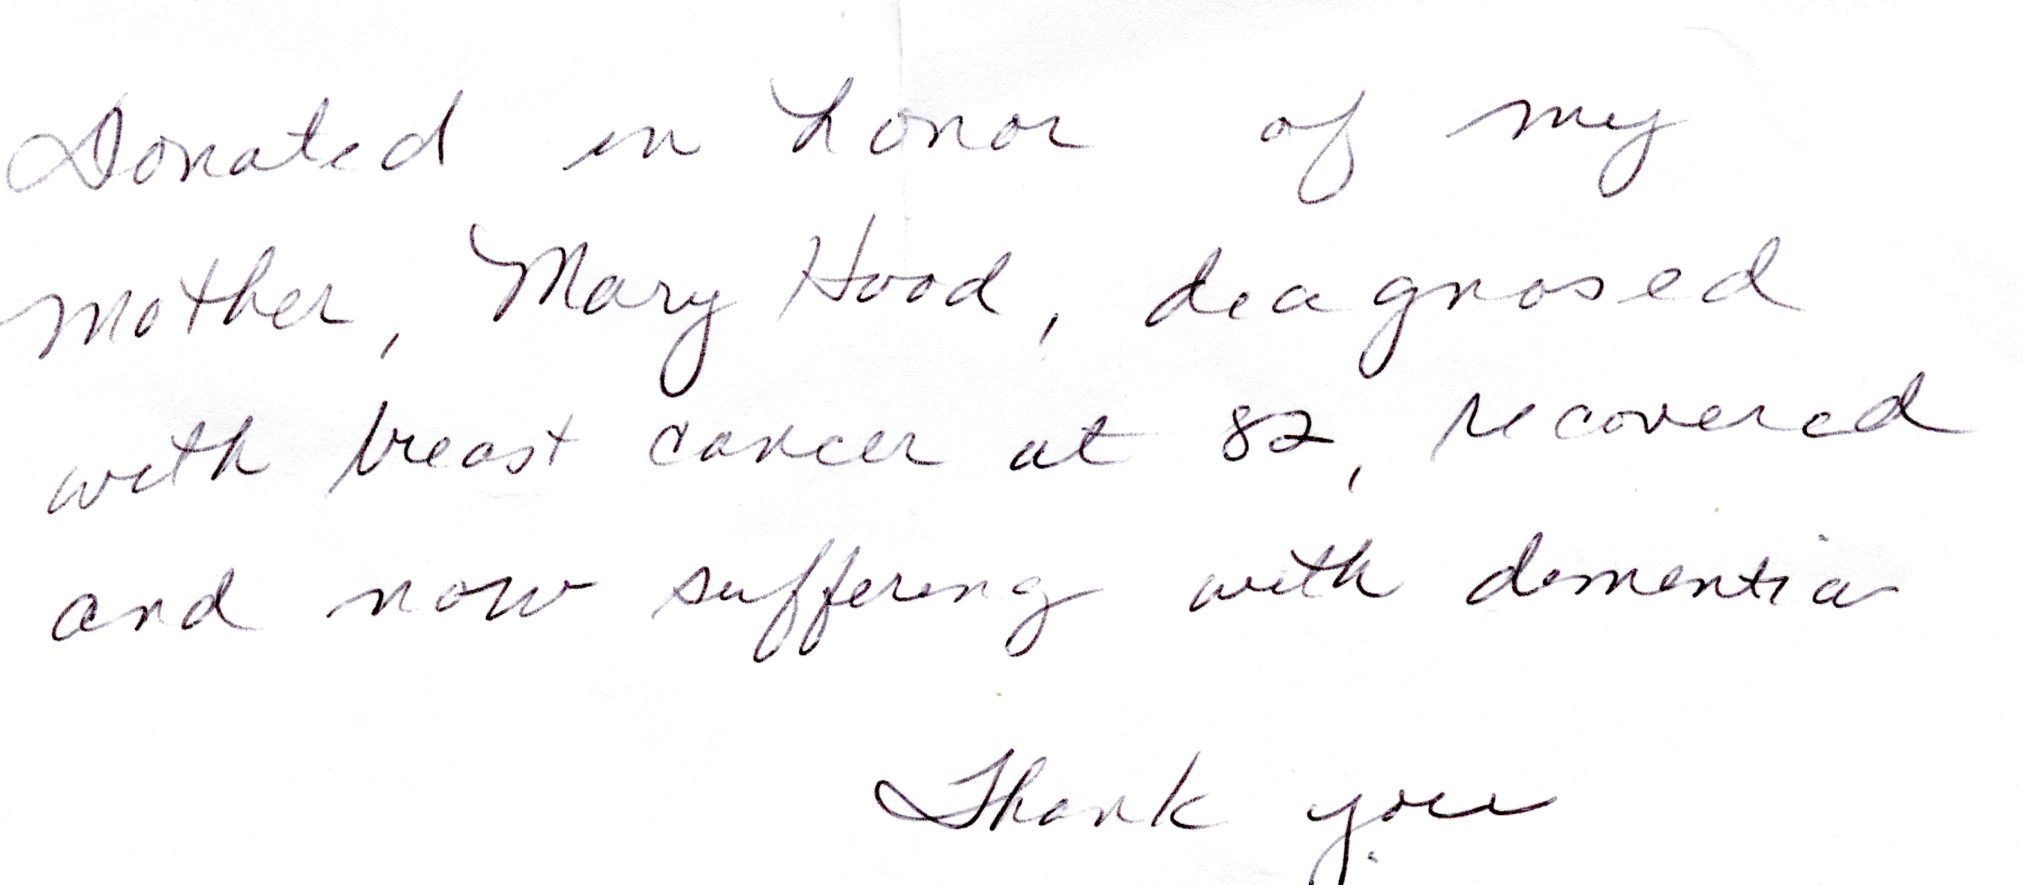 Donated in honor of my
mother, Mary Hood, diagnosed
with breast cancer at 82, recovered
and now suffering with dementia
Thank you